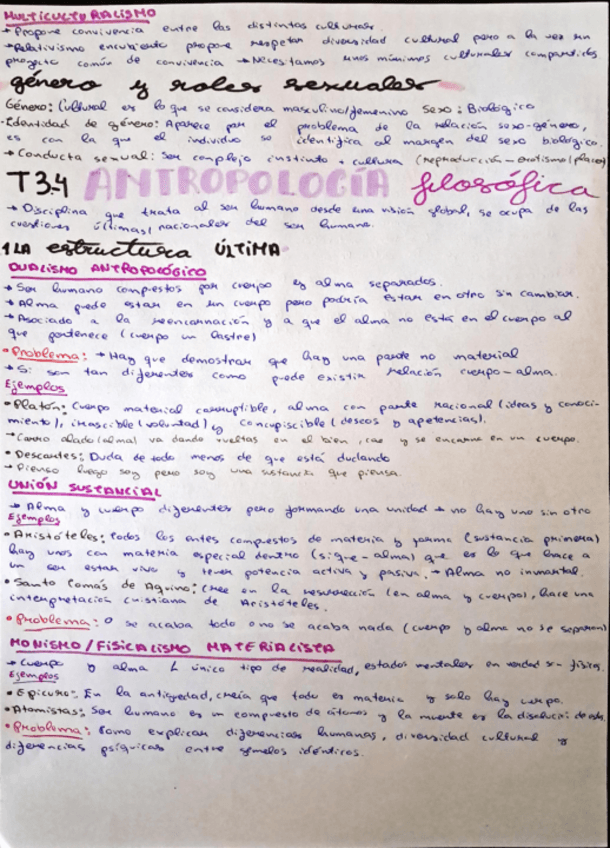 MULTICULTURALISMO
→ Propone convivencia entre las distintas culturas.
→ Relativismo encubierto propone respetar diversidad cultural pero a la vez un
proyecto común de convivencia → Necesitamos unos mínimos culturales compartidos
género y roles sexuales
Género: Cultural es lo que se considera masculino/femenino Sexo: Biológico
· Identidad de género: Aparece por el problema de la relación sexo-género,
es con la que el individuo se identifica al margen del sexo biológico.
→ Conducta sexual: Ser complejo instinto + cultura (reproducción - erotismo/placer)
T3.4 ANTROPOLOGÍA filosófica
→ Disciplina que trata al ser humano desde una visión global, se ocupa de las
cuestiones últimas/racionales del ser humano.
1 LA estructura ÚLTIMA
DUALISMO ANTROPOLÓGICO
→ Ser humano compuestos por cuerpo y alma separados.
→ Alma puede estar en un cuerpo pero podría estar en otro sin cambiar.
→ Asociado a la reencarnación y a que el alma no está en el cuerpo al
que pertenece (cuerpo un lastre)
• Problema: → Hay que demostrar que hay una parte no material
→ Si son tan diferentes como puede existir relación cuerpo-alma.
Ejemplos
• Platón: Cuerpo material corruptible, alma con parte racional (ideas y conoci-
miento), irascible (voluntad) y concupiscible (deseos y apetencias).
→ Carro alado (alma) va dando vueltas en el bien, cae y se encarna en un cuerpo.
• Descartes: Duda de todo menos de que está dudando
→ Pienso luego soy pero soy una sustancia que piensa.
UNIÓN SUSTANCIAL
→ Alma y cuerpo diferentes pero formando una unidad → no hay uno sin otro
Ejemplos
• Aristóteles: Todos los entes compuestos de materia y forma (sustancia primera)
hay unos con materia especial dentro (sique-alma) que es lo que hace a
un ser estar vivo y tener potencia activa y pasiva. → Alma no inmortal.
• Santo Tomás de Aquino: Cree en la resurrección (en alma y cuerpo), hace una
interpretación cristiana de Aristóteles.
• Problema: O se acaba todo o no se acaba nada (cuerpo y alma no se separan)
MONISMO/FISICALISMO MATERIALISTA
→ Cuerpo y alma único tipo de realidad, estados mentales en verdad son físicos.
Ejemplos
• Epicuro: En la antigüedad, creía que todo es materia y solo hay cuerpo.
• Atomistas: Ser humano es un compuesto de átomos y la muerte es la disolución de
• Problema: Como explicar diferencias humanas, diversidad cultural y
diferencias psíquicas entre gemelos idénticos.